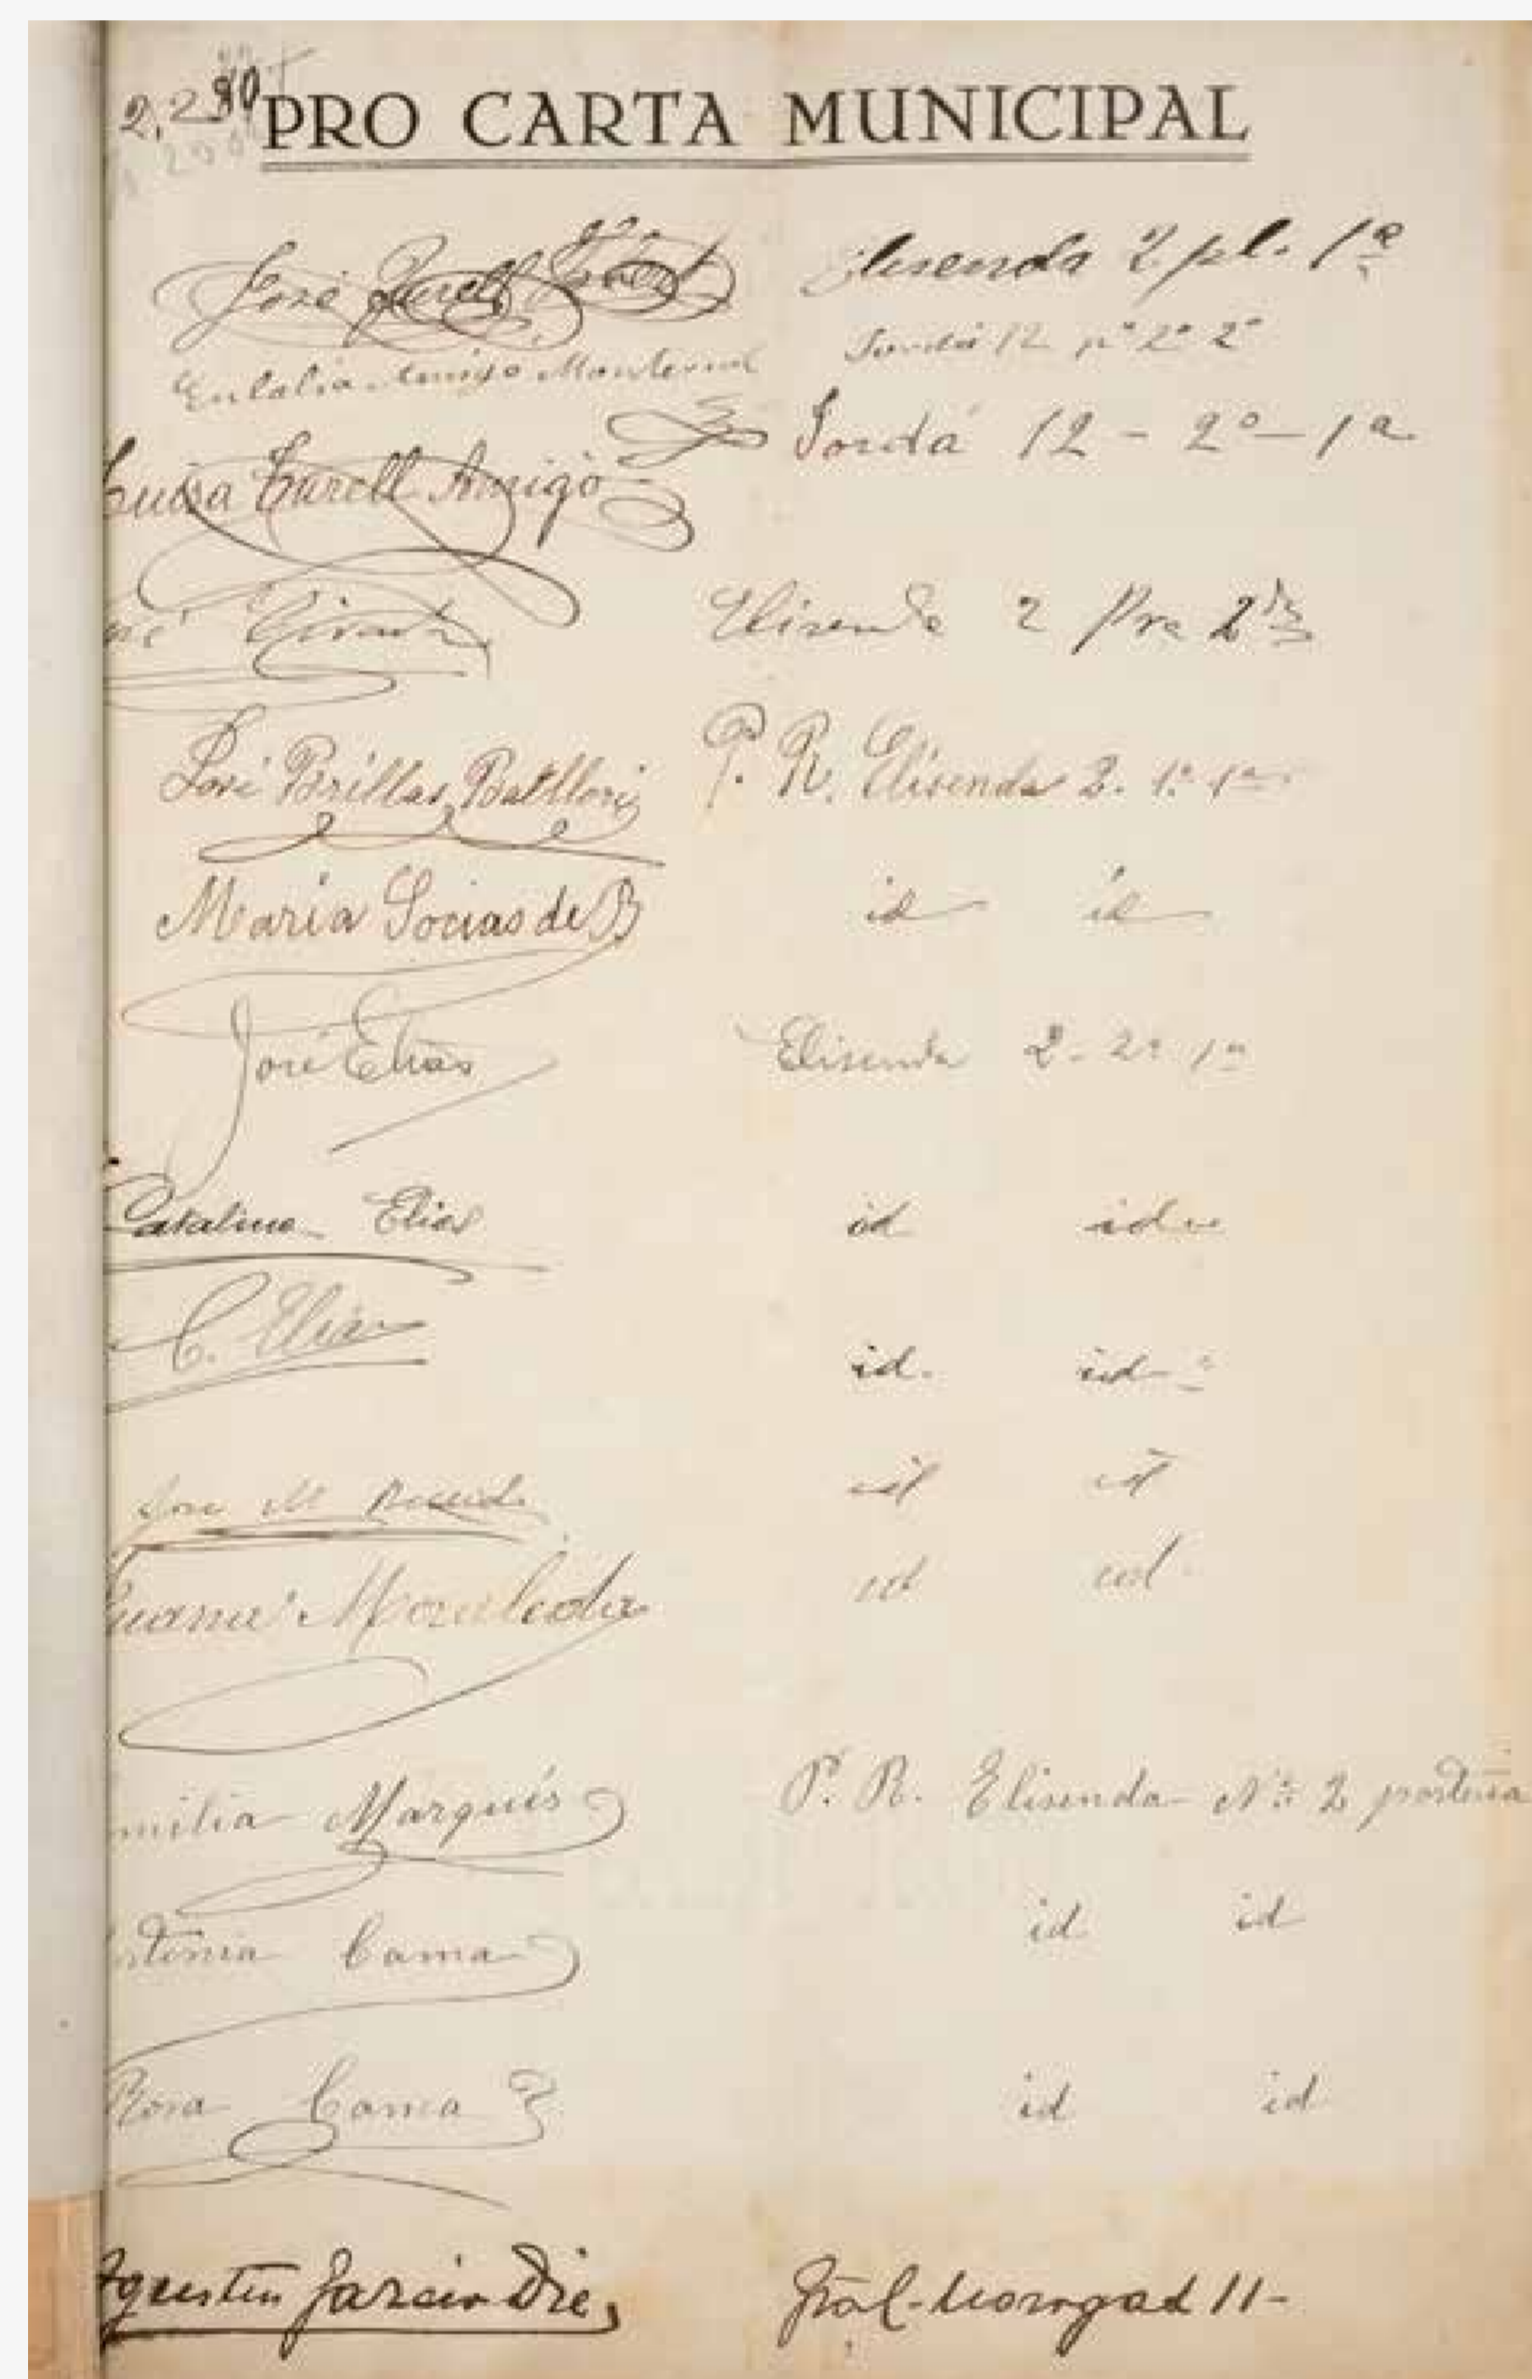 PRO CARTA MUNICIPAL
José Turell Elisenda 2 pl. 1ª
Eulalia Amigo Jordá 12 2º 2ª
Luisa Turell Amigó Jordá 12 - 2º - 1ª
Elisenda 2 Pra 2ª
José Brillas Batllori P. R. Elisenda 2. 1º 1ª
Maria Socias de B id id
José Elias Elisenda 2 - 2º 1ª
Catalina Elias id id
C. Elias id. id
José M id id
Juana id id
milia Marqués P. R. Elisenda Nº 2 porteria
Cama id id
Rosa Cama id id
Agustin Garcia 11-